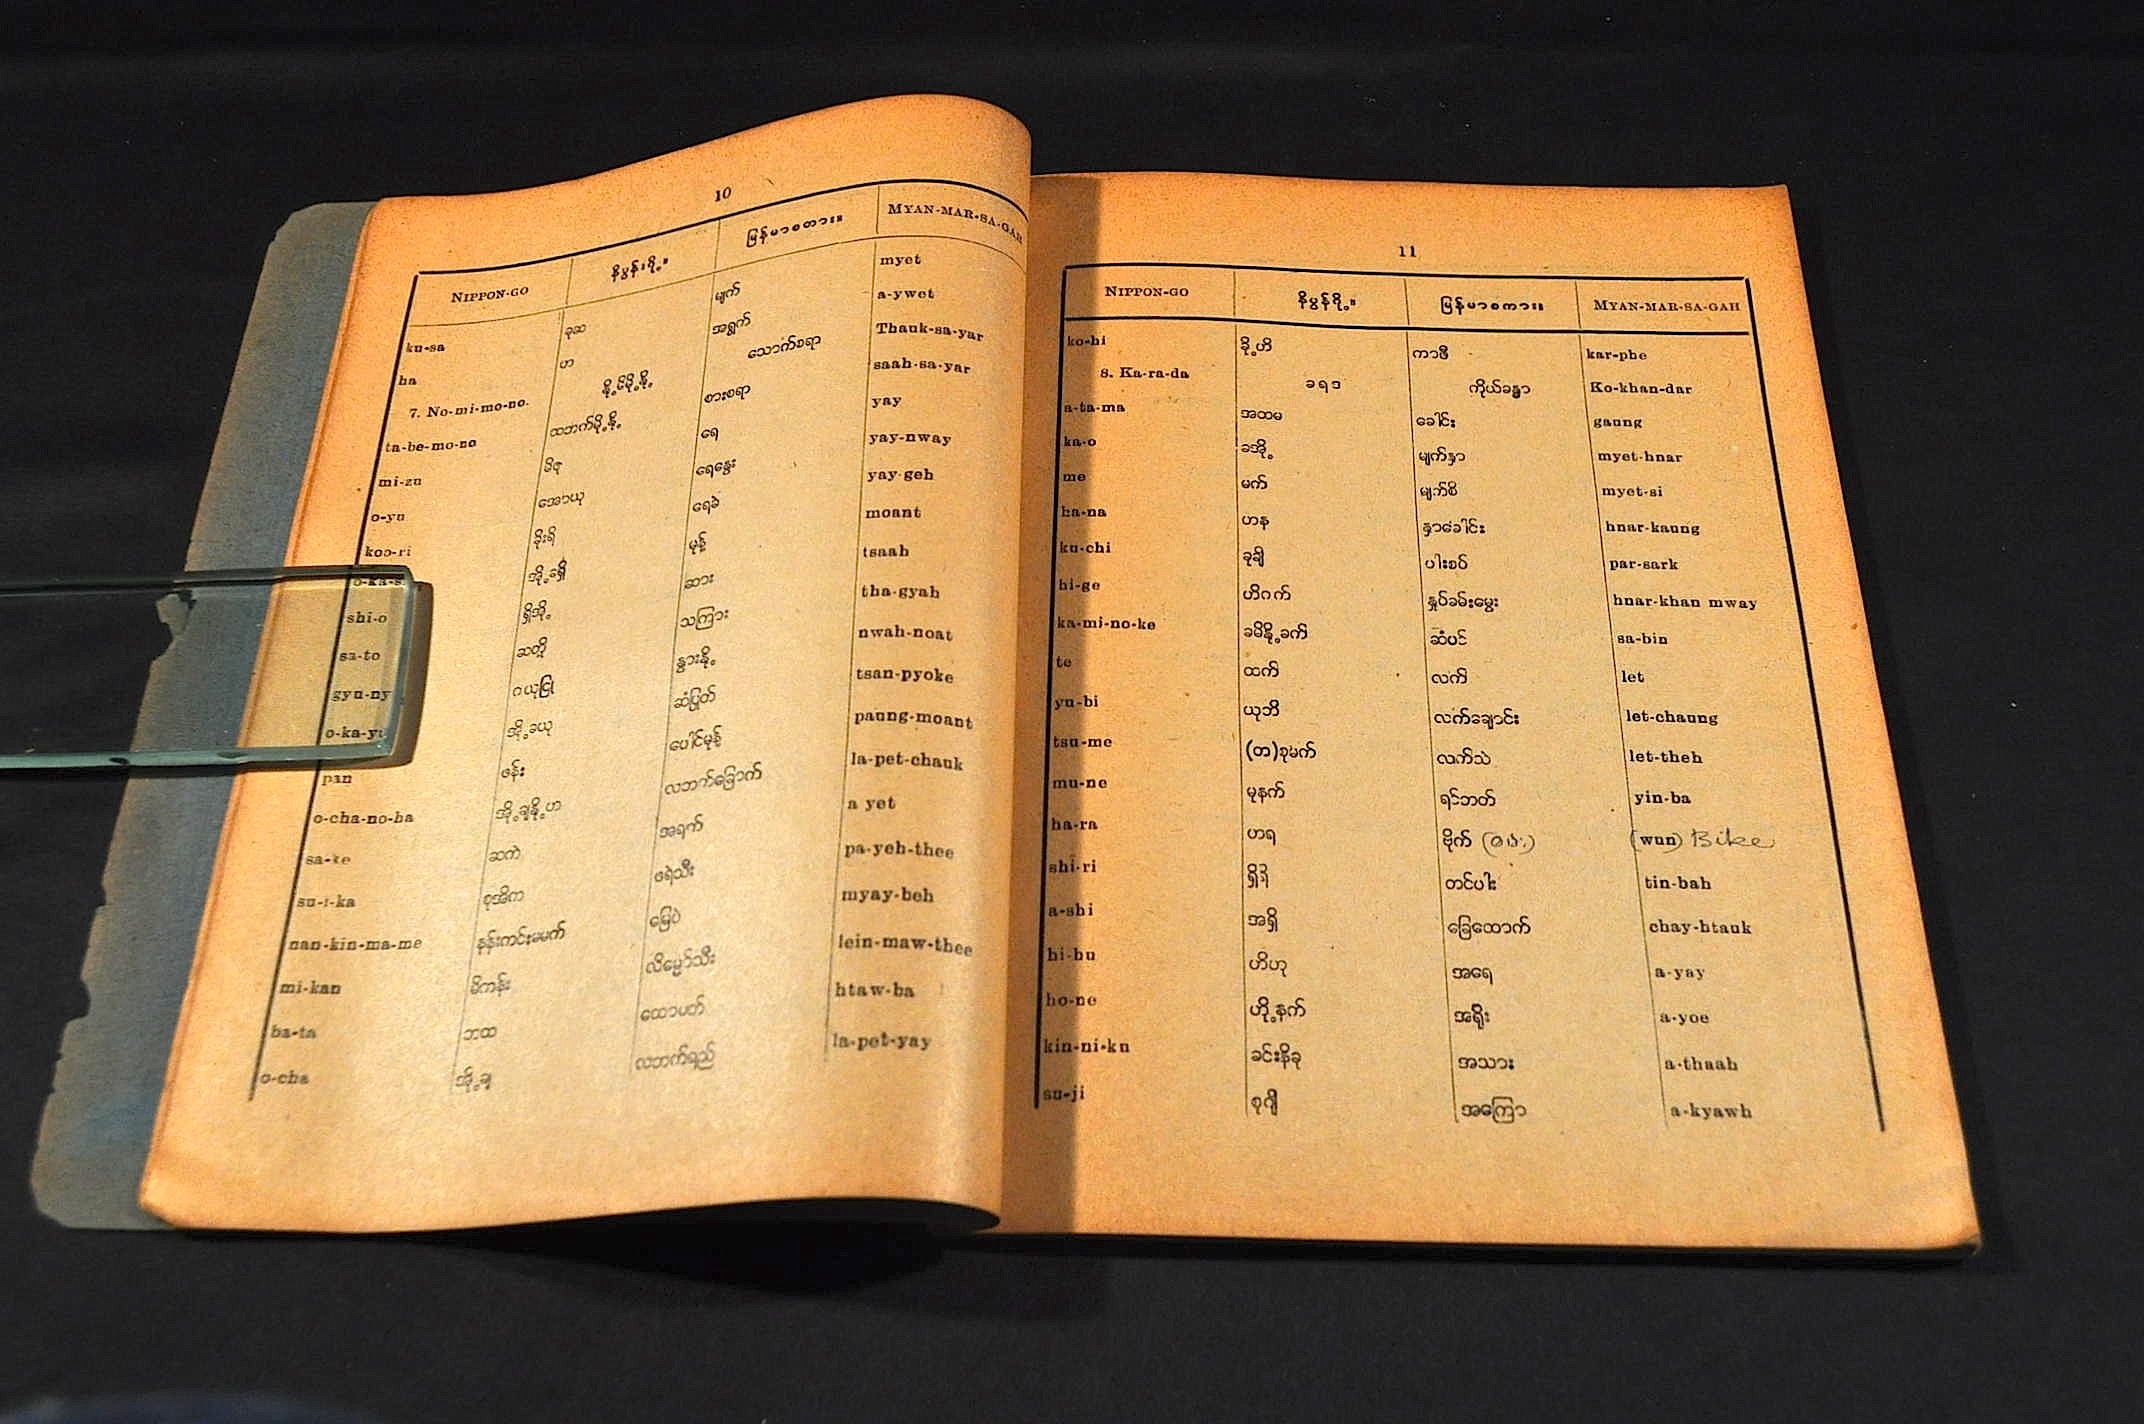 10
NIPPON-GO နိပွန်ဂို။ မြန်မာစကား။ MYAN-MAR-SA-GAH
ku-sa ခုဆ မျက် myet
ha ဟ အရွက် a-ywet
7. No-mi-mo-no. နို့မိမို့နို့ သောက်စရာ Thauk-sa-yar
ta-be-mo-no ထဘက်မို့နို့ စားစရာ saah-sa-yar
mi-zu မိဇု ရေ yay
o-yu အောယု ရေနွေး yay-nway
koo-ri ခိုးရိ ရေခဲ yay-geh
o-ka-s အို့ခရှိ မုန့် moant
shi-o ရှိအို့ ဆား tsaah
sa-to ဆတို့ သကြား tha-gyah
gyu-ny ဂယုငြု နွားနို့ nwah-noat
o-ka-yu အို့ခယု ဆံပြုတ် tsan-pyoke
pan ဖန်း ပေါင်မုန့် paung-moant
o-cha-no-ha အို့ချနို့ဟ လဘက်ခြောက် la-pet-chauk
sa-ke ဆကဲ အရက် a yet
su-i-ka စုအိက ဖရဲသီး pa-yeh-thee
nan-kin-ma-me နန်းကင်းမမက် မြေပဲ myay-beh
mi-kan မိကန်း လိမ္မော်သီး lein-maw-thee
ba-ta ဘထ ထောပတ် htaw-ba
o-cha အို့ချ လဘက်ရည် la-pet-yay
11
NIPPON-GO နိပွန်ဂို့။ မြန်မာစကား။ MYAN-MAR-SA-GAH
ko-hi ခို့ဟိ ကာဖီ kar-phe
8. Ka-ra-da ခရဒ ကိုယ်ခန္ဓာ Ko-khan-dar
a-ta-ma အထမ ခေါင်း gaung
ka-o ခအို့ မျက်နှာ myet-hnar
me မက် မျက်စိ myet-si
ha-na ဟန နှာခေါင်း hnar-kaung
ku-chi ခုချိ ပါးစပ် par-sark
hi-ge ဟိဂက် နှုပ်ခမ်းမွေး hnar-khan mway
ka-mi-no-ke ခမိနို့ခက် ဆံပင် sa-bin
te ထက် လက် let
yu-bi ယုဘိ လက်ချောင်း let-chaung
tsu-me (တ)စုမက် လက်သဲ let-theh
mu-ne မုနက် ရင်ဘတ် yin-ba
ha-ra ဟရ ဗိုက် (ဝမ်း) (wun) Bike
shi-ri ရှိရိ တင်ပါး tin-bah
a-shi အရှိ ခြေထောက် chay-htauk
hi-hu ဟိဟု အရေ a-yay
ho-ne ဟို့နက် အရိုး a-yoe
kin-ni-ku ခင်းနိခု အသား a-thaah
su-ji စုဂျိ အကြော a-kyawh